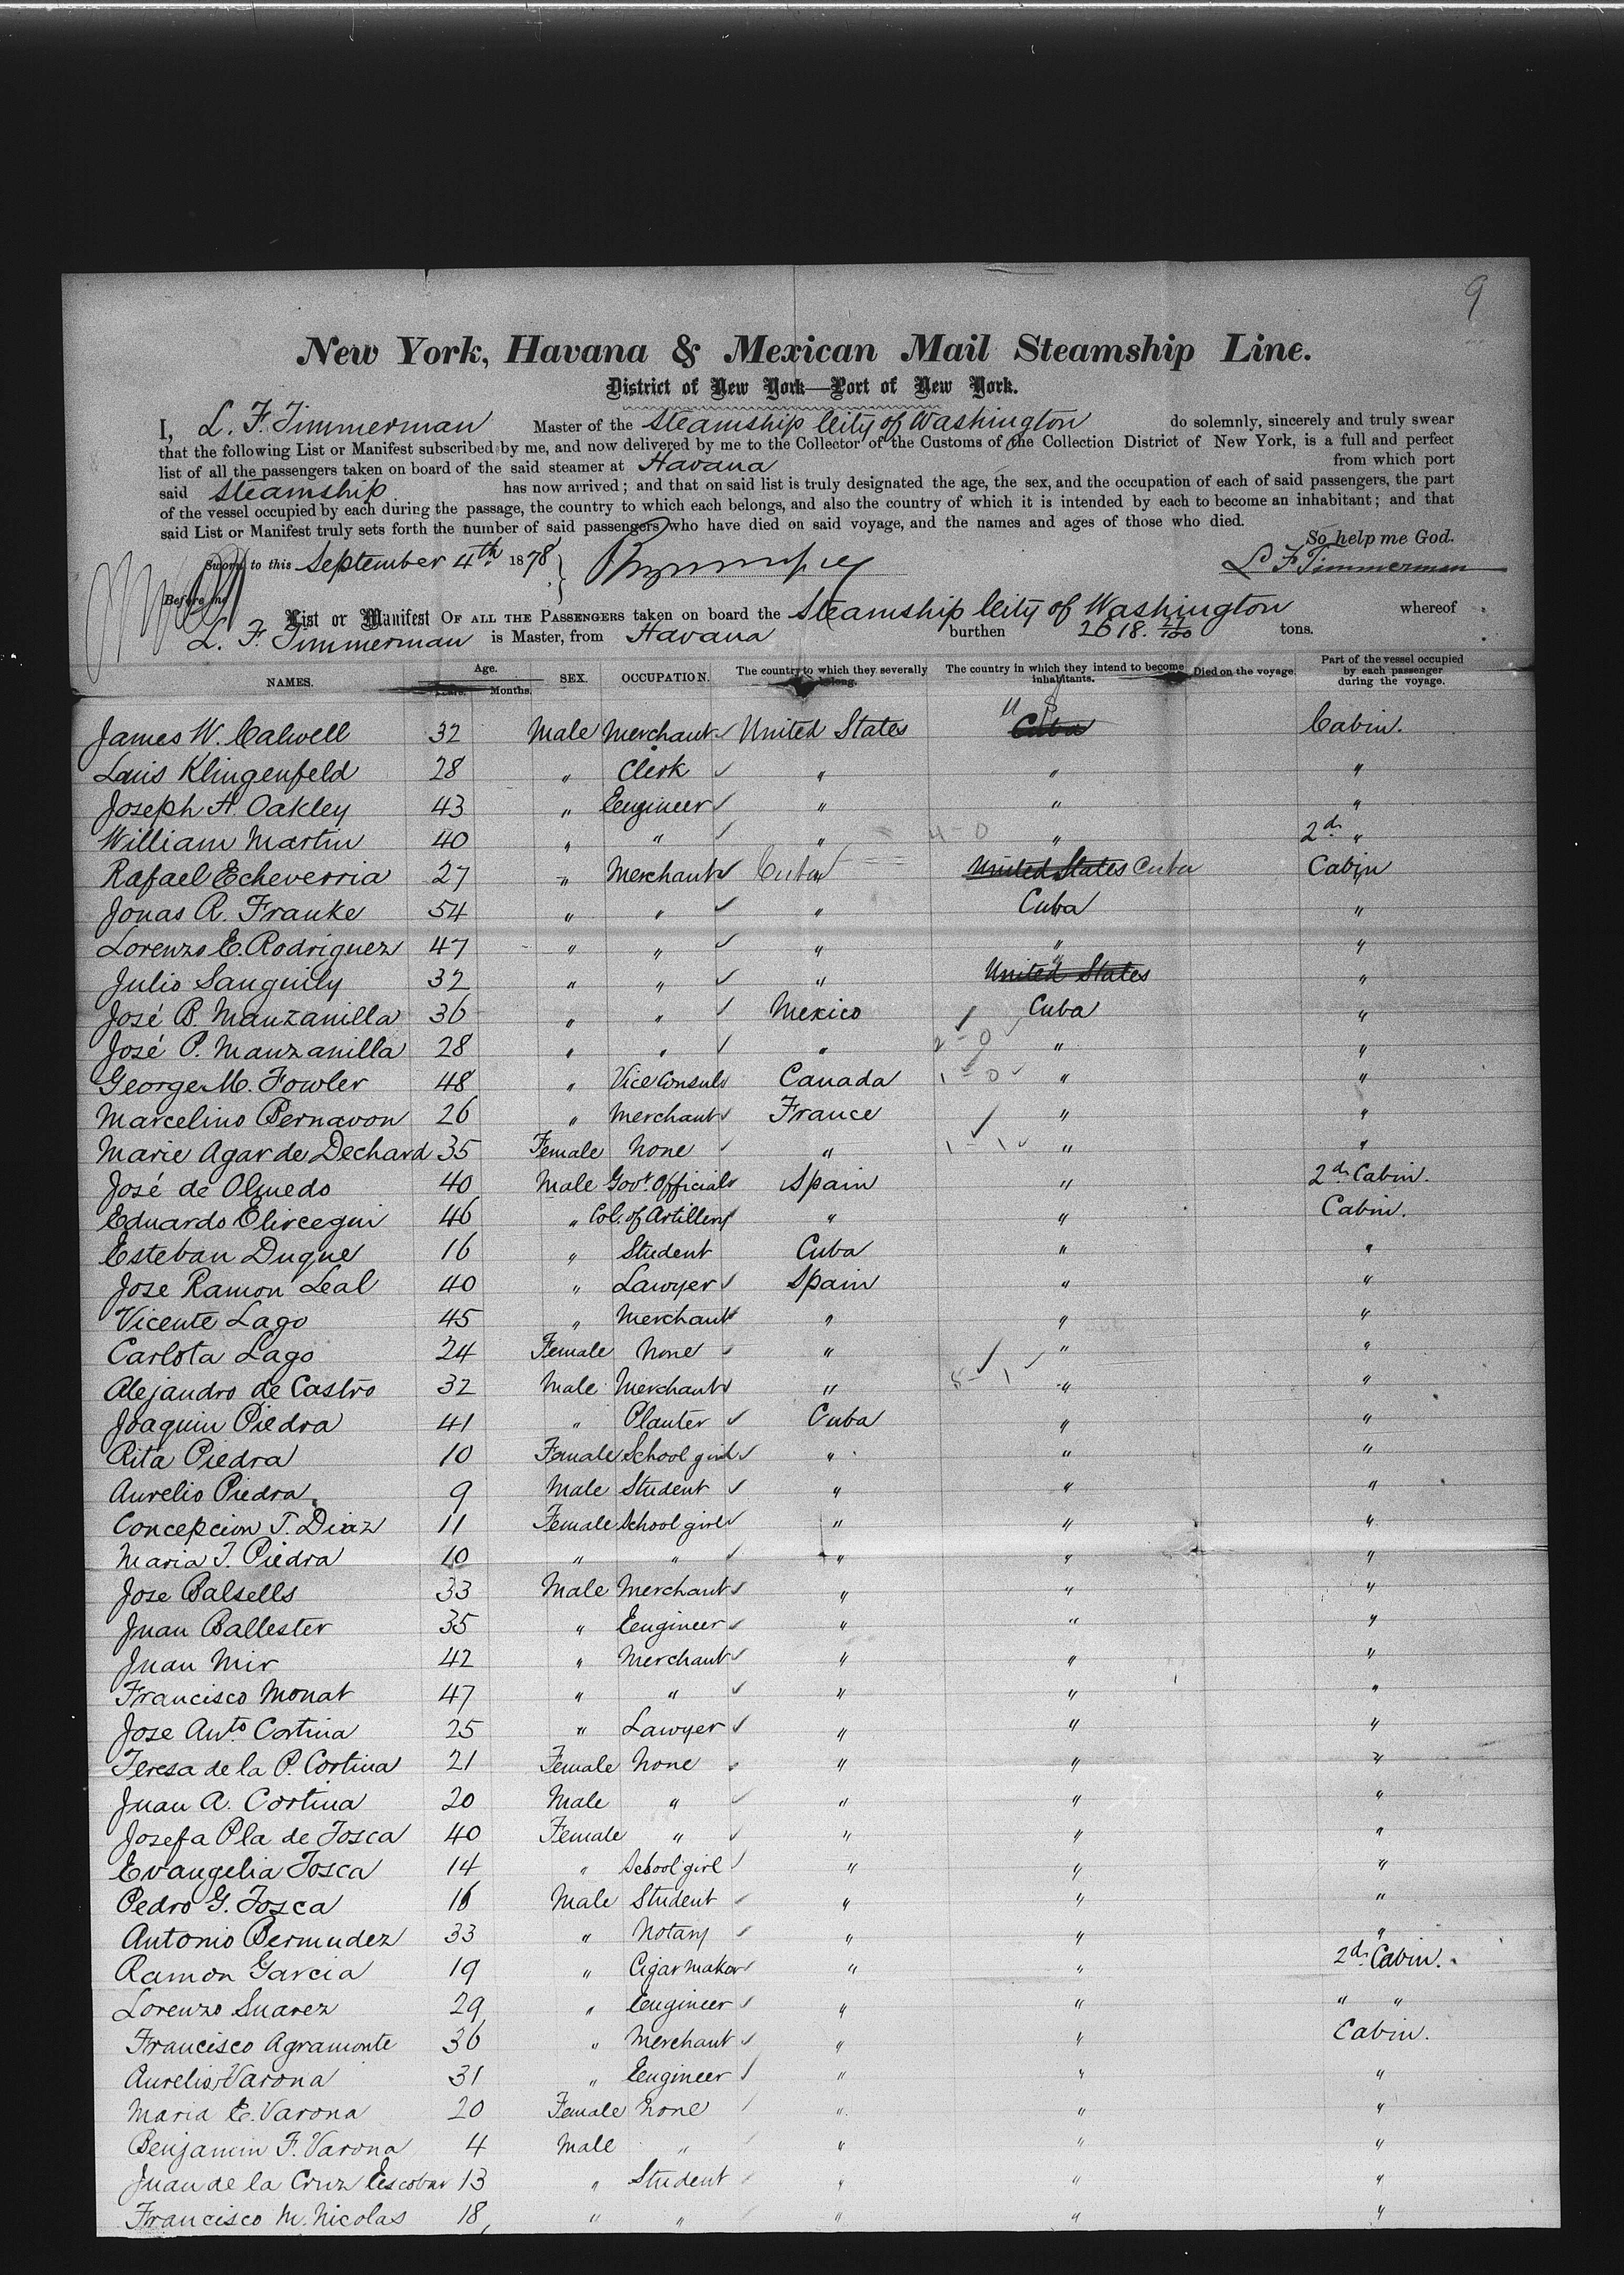 9
New York, Havana & Mexican Mail Steamship Line.
District of New York—Port of New York.
I, L. F. Timmerman Master of the Steamship City of Washington do solemnly, sincerely and truly swear
that the following List or Manifest subscribed by me, and now delivered by me to the Collector of the Customs of the Collection District of New York, is a full and perfect
list of all the passengers taken on board of the said steamer at Havana from which port
said Steamship has now arrived; and that on said list is truly designated the age, the sex, and the occupation of each of said passengers, the part
of the vessel occupied by each during the passage, the country to which each belongs, and also the country of which it is intended by each to become an inhabitant; and that
said List or Manifest truly sets forth the number of said passengers who have died on said voyage, and the names and ages of those who died.
So help me God.
Sworn to this September 4th 1878 L F Timmerman
Before me
List or Manifest OF ALL THE PASSENGERS taken on board the Steamship City of Washington whereof
L. F. Timmerman is Master, from Havana burthen 2618. 27/100 tons.
NAMES. Age. Years. Months. SEX. OCCUPATION. The country to which they severally belong. The country in which they intend to become inhabitants. Died on the voyage. Part of the vessel occupied by each passenger during the voyage.
James W. Calwell 32 Male Merchant United States U S Cuba Cabin.
Louis Klingenfeld 28 " Clerk " " "
Joseph H. Oakley 43 " Eengineer " " "
William Martin 40 " " " 4-0 " 2d "
Rafael Echeverria 27 " Merchant Cuba United States Cuba Cabin
Jonas R. Franke 54 " " " Cuba "
Lorenzo E. Rodriguez 47 " " " " "
Julio Sanguily 32 " " " United States " "
José B. Manzanilla 36 " " Mexico Cuba "
José P. Manzanilla 28 " " " 2-0 " "
George M. Fowler 48 " Vice Consul Canada 1-0 " "
Marcelino Bernavon 26 " Merchant France " "
Marie Agar de Dechard 35 Female None " 1-1 " "
José de Olmedo 40 Male Govt. Official Spain " 2d Cabin.
Eduardo Elircegui 46 " Col. of Artillery " " Cabin.
Esteban Duque 16 " Student Cuba " "
Jose Ramon Leal 40 " Lawyer Spain " "
Vicente Lago 45 " Merchant " " "
Carlota Lago 24 Female None " " "
Alejandro de Castro 32 Male Merchant " 5-1 " "
Joaquin Piedra 41 " Planter Cuba " "
Rita Piedra 10 Female School girl " " "
Aurelio Piedra 9 Male Student " " "
Concepcion T. Diaz 11 Female School girl " " "
Maria T. Piedra 10 " " " " "
Jose Balsells 33 Male Merchant " " "
Juan Ballester 35 " Eengineer " " "
Juan Mir 42 " Merchant " " "
Francisco Monat 47 " " " " "
Jose Anto. Cortina 25 " Lawyer " " "
Teresa de la P. Cortina 21 Female None " " "
Juan A. Cortina 20 Male " " " "
Josefa Pla de Tosca 40 Female " " " "
Evangelia Tosca 14 " School girl " " "
Pedro G. Tosca 16 Male Student " " "
Antonio Bermudez 33 " Notary " " "
Ramon Garcia 19 " Cigar maker " " 2d Cabin.
Lorenzo Suarez 29 " Eengineer " " " "
Francisco Agramonte 36 " Merchant " " Cabin.
Aurelio Varona 31 " Eengineer " " "
Maria E. Varona 20 Female None " " "
Benjamin F. Varona 4 Male " " " "
Juan de la Cruz Escobar 13 " Student " " "
Francisco M. Nicolas 18 " " " " "